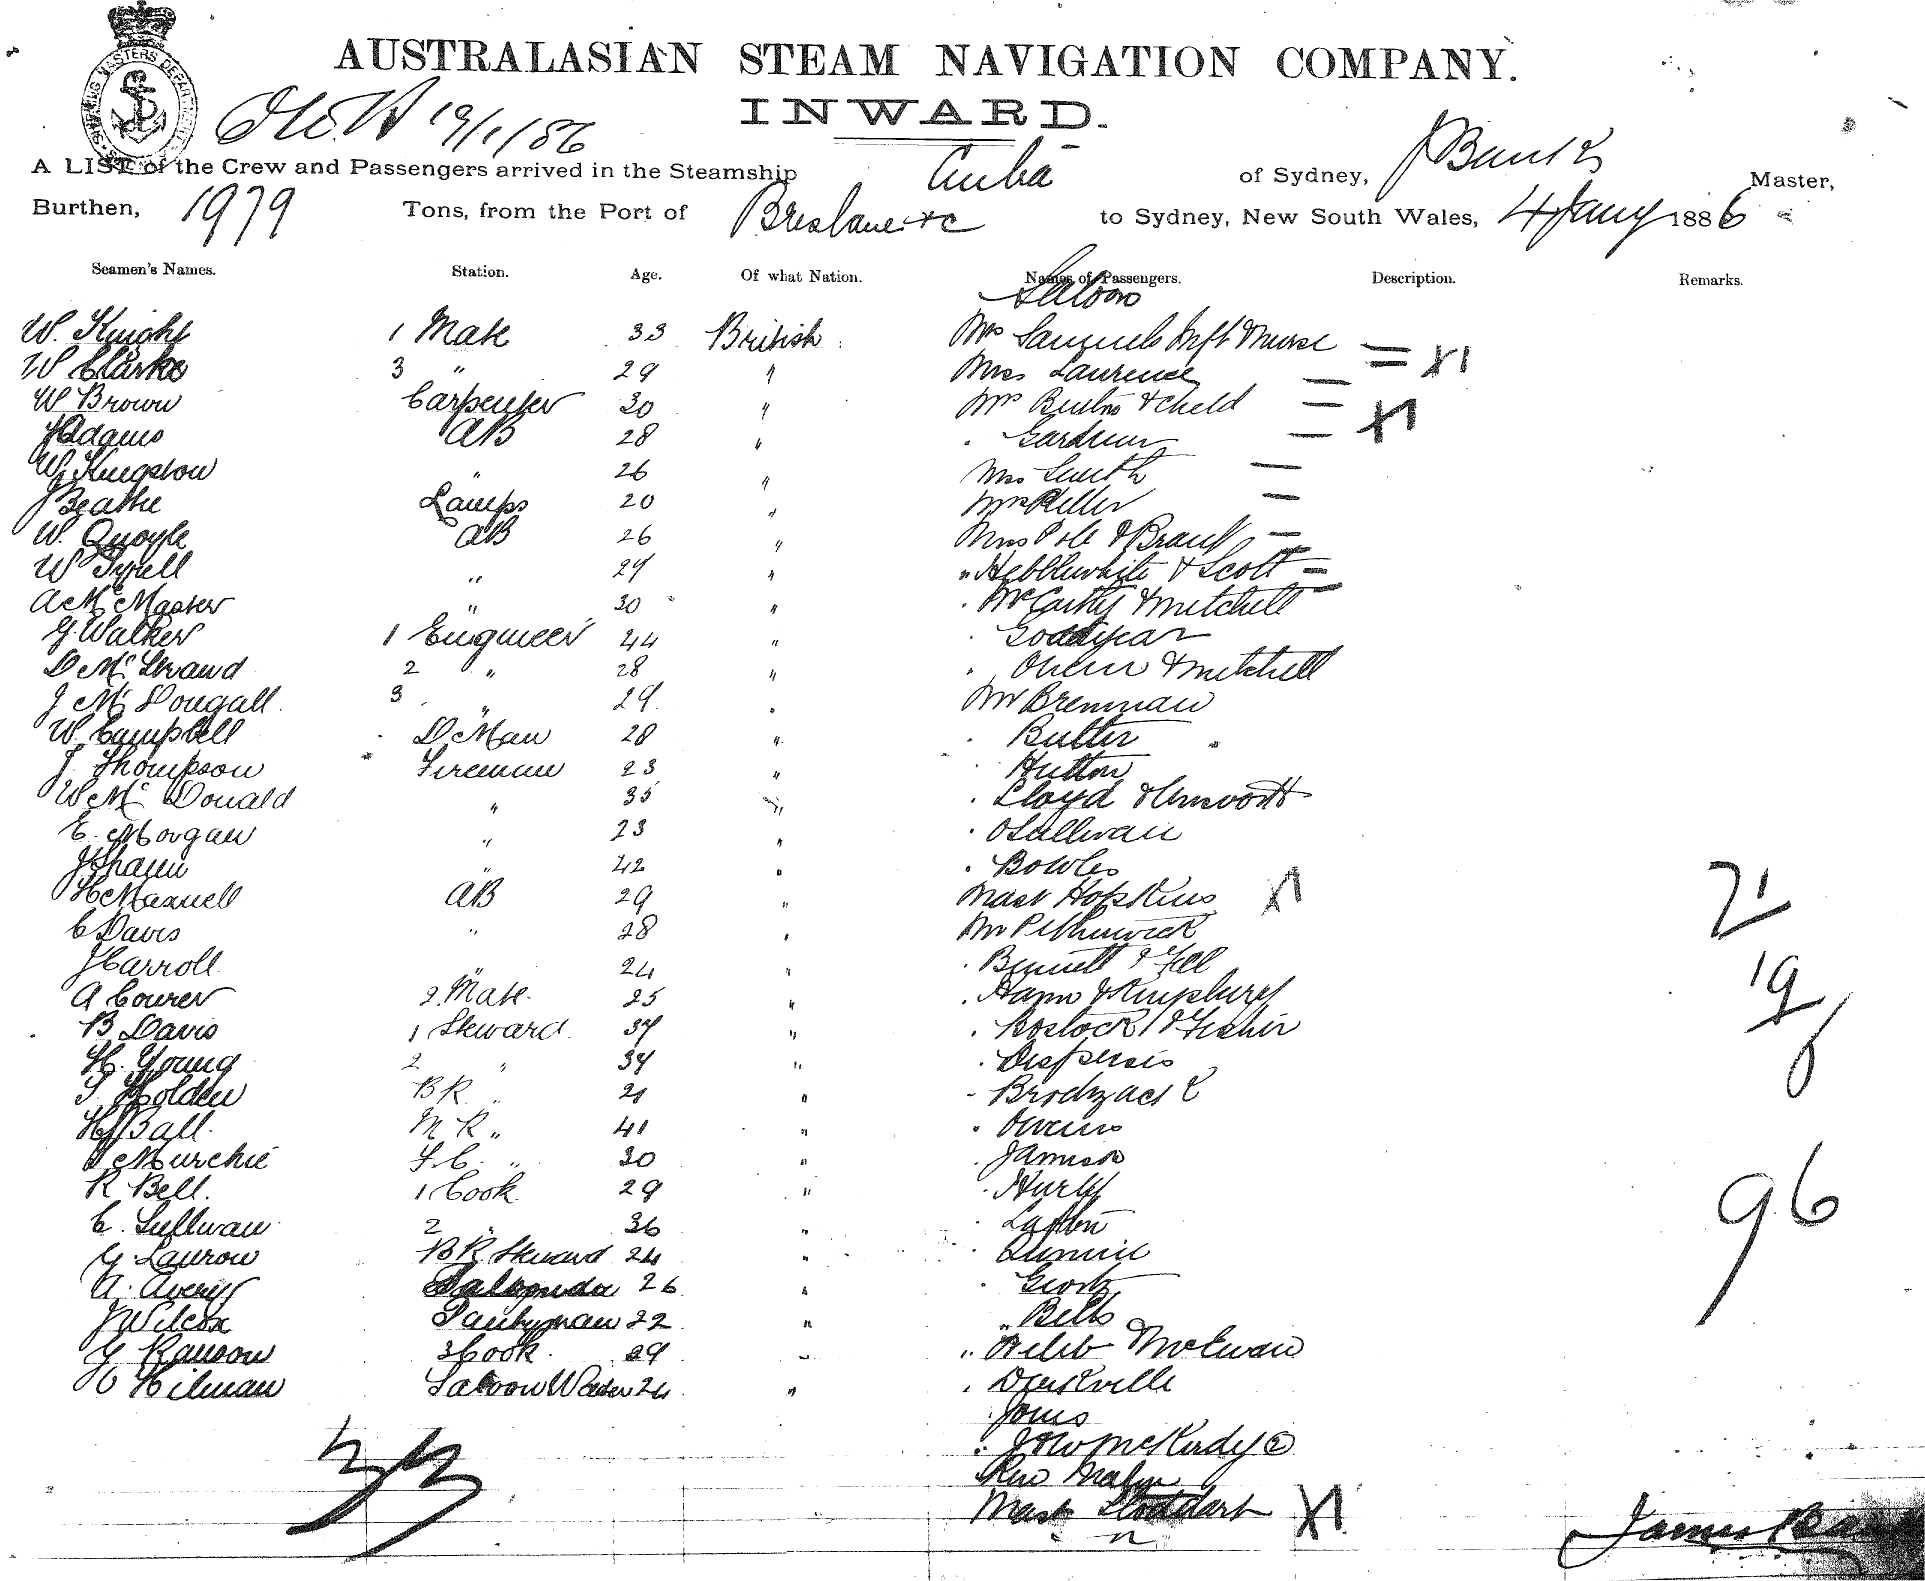 AUSTRALASIAN STEAM NAVIGATION COMPANY.
INWARD.
19/1/86
A LIST of the Crew and Passengers arrived in the Steamship Cuba of Sydney, J Banks Master,
Burthen, 1979 Tons, from the Port of Brisbane &c to Sydney, New South Wales, 4 Jany 1886
Seamen's Names. Station. Age. Of what Nation. Names of Passengers. Description. Remarks.
Saloon
W. Knight 1 Mate 33 British Mrs Samuels Inft & Nurse = X1
W Clarke 3 " 29 " Miss Laurence
W Brown Carpenter 30 " Mrs Burton & Child X1
J Adams AB 28 " . Gardner
W. Kingston " 26 " Mrs Smith
J Beattie Lamps 20 " Mrs Heller
W. Quoyle AB 26 " Miss Pole & Brauf
W Tyrell " 29 " " Hebblewhite & Scott
A McMaster " 30 " . McCarthy & Mitchell
G. Walker 1 Engineer 44 " . Goodyear
D McStrand 2 " 28 " . & Mitchell
J McDougall. 3 " 29. " Mr Brennan
W. Campbell DMan 28 " . Butter
J. Thompson Fireman 23 " . Hutton
W McDonald " 35 " . Lloyd &
E. Morgan " 23 " . OSullivan
J Shann " 42 " . Bowles
H Maxwell AB 29 " Mast Hopkins X1
C Davis " 28 " Mr Pethurick
J Carroll " 24 " . Bennett & Fell
A Courer 2 Mate. 25 " . Hann & Kingsbury
B Davis 1 Steward. 37 " . Bostock & Fisher
H. Young 2 " 37 "
S Holden BR " 21 " - Brodzack
H J Ball. MR " 41 " . Owens
J Murchie F.C. " 30 " . Jamison
R Bell. 1 Cook. 29 " . Hurly
C. Sullivan 2 " 36 " . Lapton
G Laurow BR Steward 24 "
A. Avery Saloon do 26 "
J Wilcox Pantryman 22 " " Betts
G Ransow 3 Cook. 29 " " Webb & McEwan
C Hilman Saloon Waiter 24 " . Durkville
. Jones
J & W McKirdy 2
Rev
Mast Stoddart X1
33
21
19
6
96
James Banks